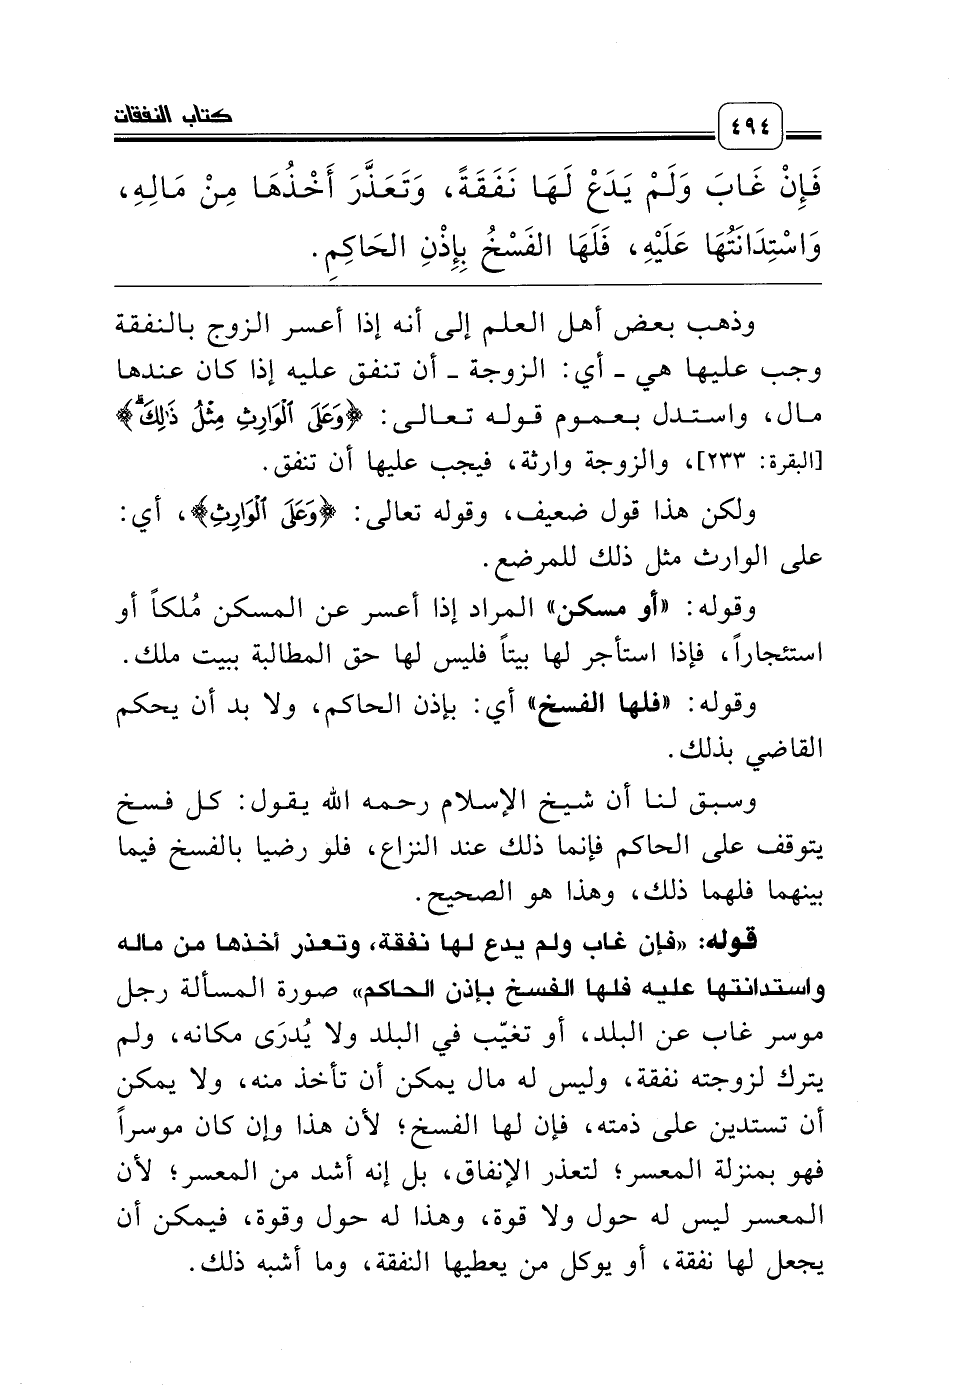 ٤٩٤
كتاب النفقات
فَإِنْ غَابَ وَلَمْ يَدَعْ لَهَا نَفَقَةً، وَتَعَذَّرَ أَخْذُهَا مِنْ مَالِهِ،
وَاسْتِدَانَتُهَا عَلَيْهِ، فَلَهَا الفَسْخُ بِإِذْنِ الحَاكِمِ.
وذهب بعض أهل العلم إلى أنه إذا أعسر الزوج بالنفقة
وجب عليها هي ـ أي: الزوجة ـ أن تنفق عليه إذا كان عندها
مال، واستدل بعموم قوله تعالى: ﴿وَعَلَى ٱلْوَارِثِ مِثْلُ ذَٰلِكَۗ﴾
[البقرة: ٢٣٣]، والزوجة وارثة، فيجب عليها أن تنفق.
ولكن هذا قول ضعيف، وقوله تعالى: ﴿وَعَلَى ٱلْوَارِثِ﴾، أي:
على الوارث مثل ذلك للمرضع.
وقوله: «أو مسكن» المراد إذا أعسر عن المسكن مُلكاً أو
استئجاراً، فإذا استأجر لها بيتاً فليس لها حق المطالبة ببيت ملك.
وقوله: «فلها الفسخ» أي: بإذن الحاكم، ولا بد أن يحكم
القاضي بذلك.
وسبق لنا أن شيخ الإسلام رحمه الله يقول: كل فسخ
يتوقف على الحاكم فإنما ذلك عند النزاع، فلو رضيا بالفسخ فيما
بينهما فلهما ذلك، وهذا هو الصحيح.
قوله: «فإن غاب ولم يدع لها نفقة، وتعذر أخذها من ماله
واستدانتها عليه فلها الفسخ بإذن الحاكم» صورة المسألة رجل
موسر غاب عن البلد، أو تغيّب في البلد ولا يُدرَى مكانه، ولم
يترك لزوجته نفقة، وليس له مال يمكن أن تأخذ منه، ولا يمكن
أن تستدين على ذمته، فإن لها الفسخ؛ لأن هذا وإن كان موسراً
فهو بمنزلة المعسر؛ لتعذر الإنفاق، بل إنه أشد من المعسر؛ لأن
المعسر ليس له حول ولا قوة، وهذا له حول وقوة، فيمكن أن
يجعل لها نفقة، أو يوكل من يعطيها النفقة، وما أشبه ذلك.